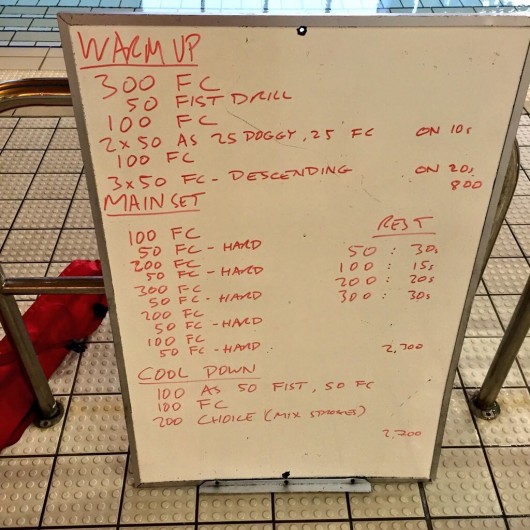 WARM UP
300 FC
50 FIST DRILL
100 FC
2x50 AS 25 DOGGY, 25 FC ON 10s
100 FC
3x50 FC - DESCENDING ON 20s
800
MAIN SET
REST
100 FC
50 FC - HARD 50 : 30s
200 FC 100 : 15s
50 FC - HARD 200 : 20s
300 FC 300 : 30s
50 FC - HARD
200 FC
50 FC - HARD
100 FC
50 FC - HARD 2,300
COOL DOWN
100 AS 50 FIST, 50 FC
100 FC
200 CHOICE (MIX STROKES)
2,700